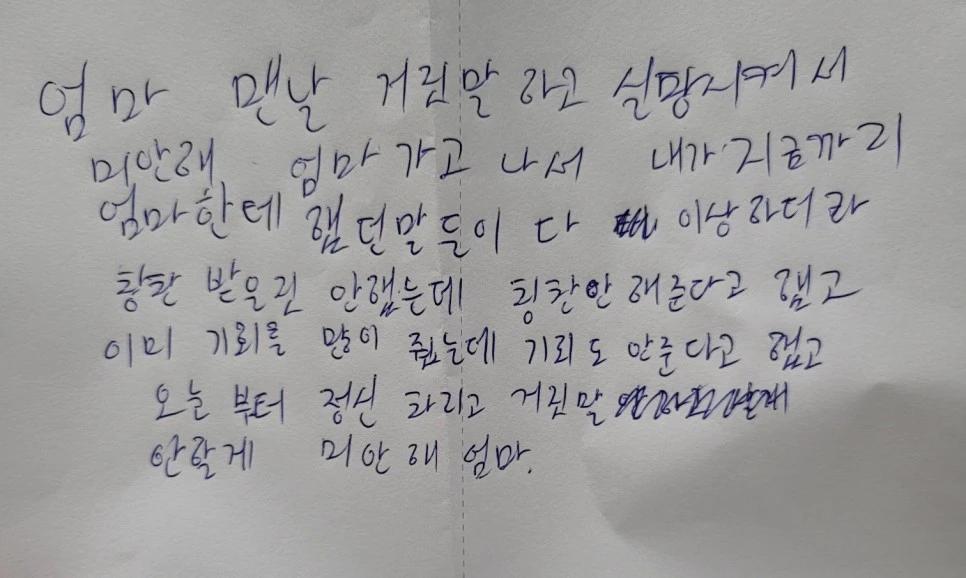 엄마 맨날 거린말 하고 실망시켜서
미안해 엄마 가고 나서 내가 지금까리
엄마한테 햄던말들이 다 이상하더라
칭찬 받을린 안햄는데 칭찬안 해준다고 햄고
이미 기회를 많이 줬는데 기회도 안준다고 햅고
오늘 부터 정신 차리고 거린말
안할게 미안해 엄마.